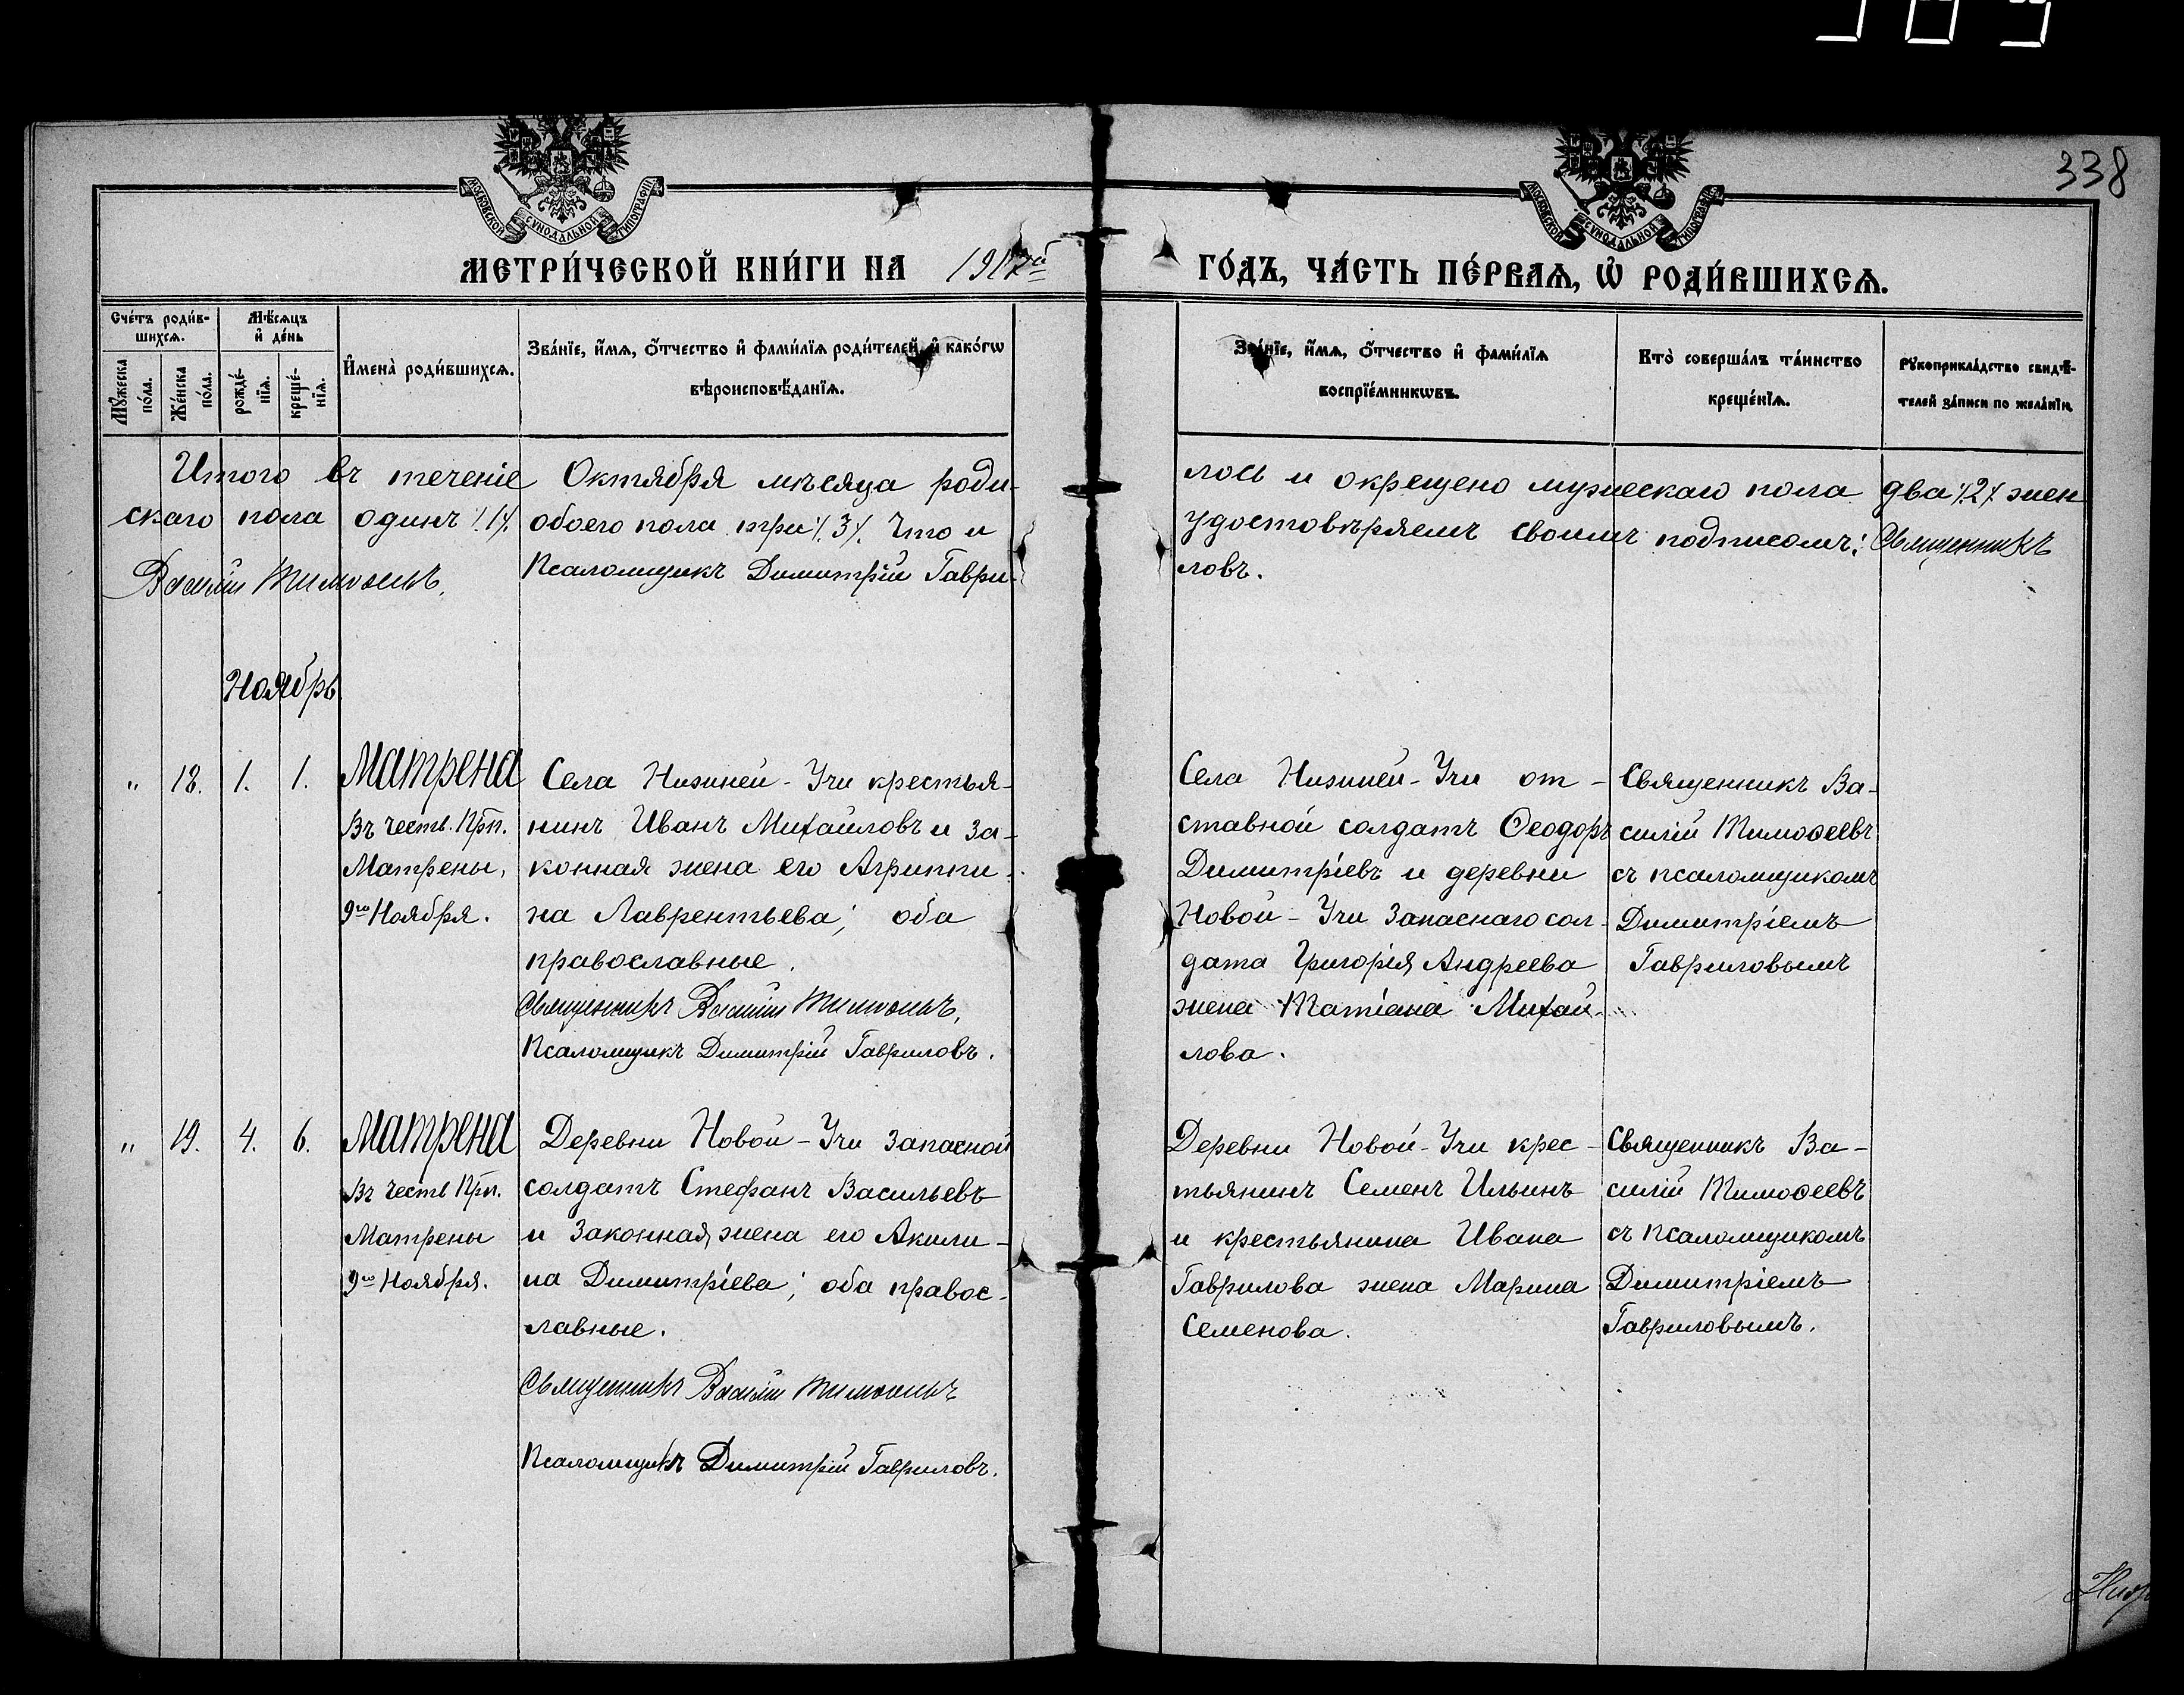 338
МОСКОВСКОЙ СѴНОДАЛЬНОЙ ТИПОГРАФІИ
МОСКОВСКОЙ СѴНОДАЛЬНОЙ ТИПОГРАФІИ
МЕТРИ́ЧЕСКОЙ КНИ́ГИ НА 1917й ГО́ДЪ, ЧА́СТЬ ПЕ́РВАѦ, Ѡ҆ РОДИ́ВШИХСѦ.
Сче́тъ роди́в-
шихсѧ.
Мꙋ́жеска
по́ла.
Же́нска
по́ла.
Мѣ́сѧцъ
и҆ де́нь
рожде́-
нїѧ.
креще́-
нїѧ.
И҆мена̀ роди́вшихсѧ.
Зва́нїе, и҆́мѧ, ѻ҆́тчество и҆ фами́лїѧ роди́телей, и҆ како́гѡ
вѣроисповѣ́данїѧ.
Зва́нїе, и҆́мѧ, ѻ҆́тчество и҆ фами́лїѧ
воспрїе́мникѡвъ.
Кто̀ соверша́лъ та́инство
креще́нїѧ.
Рꙋкоприкла́дство свидѣ́-
телей за́писи по жела́нїю
Итого въ теченіе Октября мѣсяца роди-
лось и окрещено мужескаго пола два /.2./ жен
скаго пола одинъ /.1./. обоего пола три /.3./. Что и
удостовѣряемъ своимъ подписомъ: Священникъ
Василій Тимоѳеевъ. Псаломщикъ Димитрій Гаври-
ловъ.
Ноябрь
" 18. 1. 1.
Матрена
Въ честь. Прп.
Матрены,
9го Ноября.
Села Нижней-Учи крестья-
нинъ Иванъ Михайловъ и за-
конная жена его Агриппи-
на Лаврентьева; оба
православные.
Священникъ Василій Тимоѳеевъ.
Псаломщикъ Димитрій Гавриловъ.
Села Нижней-Учи от-
ставной солдатъ Ѳеодоръ
Димитріевъ и деревни
Новой-Учи запаснаго сол-
дата Григорія Андреева
жена Матіана Михай-
лова.
Священникъ Ва-
силій Тимоѳеевъ
съ псаломщикомъ
Димитріемъ
Гавриловымъ
" 19. 4. 6.
Матрена
Въ честь Прп.
Матрены
9го Ноября.
Деревни Новой-Учи запасной
солдатъ Стефанъ Васильевъ
и законная жена его Акили-
на Димитріева; оба правос-
лавные.
Священникъ Василій Тимоѳеевъ
Псаломщикъ Димитрій Гавриловъ.
Деревни Новой-Учи крес-
тьянинъ Семенъ Ильинъ
и крестьянина Ивана
Гаврилова жена Марина
Семенова.
Священникъ Ва-
силій Тимоѳеевъ
съ псаломщикомъ
Димитріемъ
Гавриловымъ.